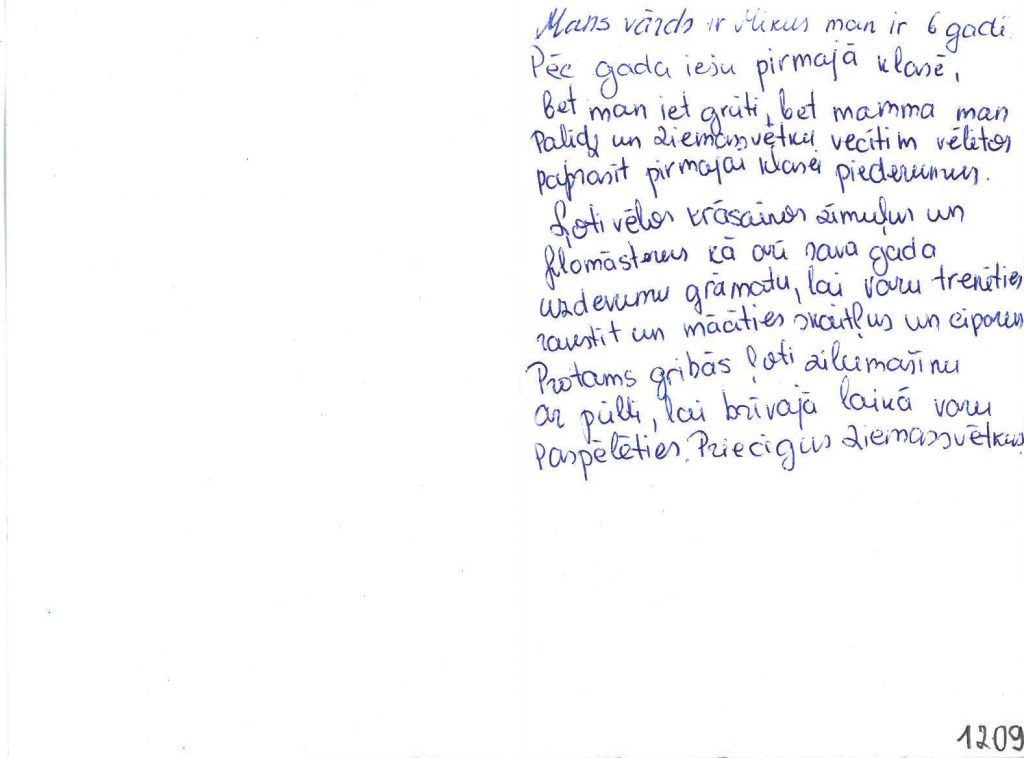 Mans vārds ir Mikus man ir 6 gadi.
Pēc gada iešu pirmajā klasē,
bet man iet grūti, bet mamma man
Palīdz un ziemassvētku vecītim vēlētos
Paprasīt pirmajai klasei piederumus.
Ļoti vēlos krāsainos zīmuļus un
flomāsterus kā arī sava gada
uzdevumu grāmatu, lai varu trenēties
rakstīt un mācīties skaitļus un ciparus
Protams gribās ļoti zilu mašīnu
ar pulti, lai brīvajā laikā varu
Paspēlēties. Priecīgus Ziemassvētkus
1209